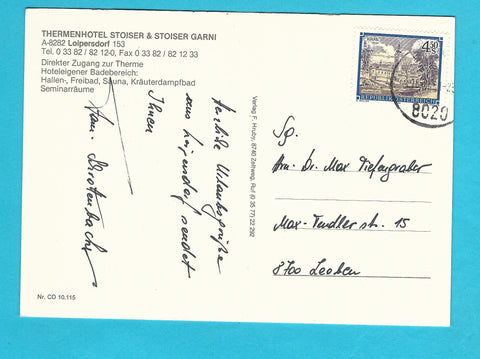 THERMENHOTEL STOISER & STOISER GARNI
A-8282 Loipersdorf 153
Tel. 0 33 82 / 82 12-0, Fax 0 33 82 / 82 12 33
Direkter Zugang zur Therme
Hoteleigener Badebereich:
Hallen-, Freibad, Sauna, Kräuterdampfbad
Seminarräume
Herzliche Urlaubsgrüße
aus Loipersdorf sendet
Ihnen
Fam.
Nr. CO 10.115
Verlag F. Hruby, 8740 Zeltweg, Ruf (0 35 77) 22 292
4.50
REPUBLIK ÖSTERREICH
8020
Sg.
Hrn. Dr. Max Tiefengraber
Max-Tendler str. 15
8700 Leoben